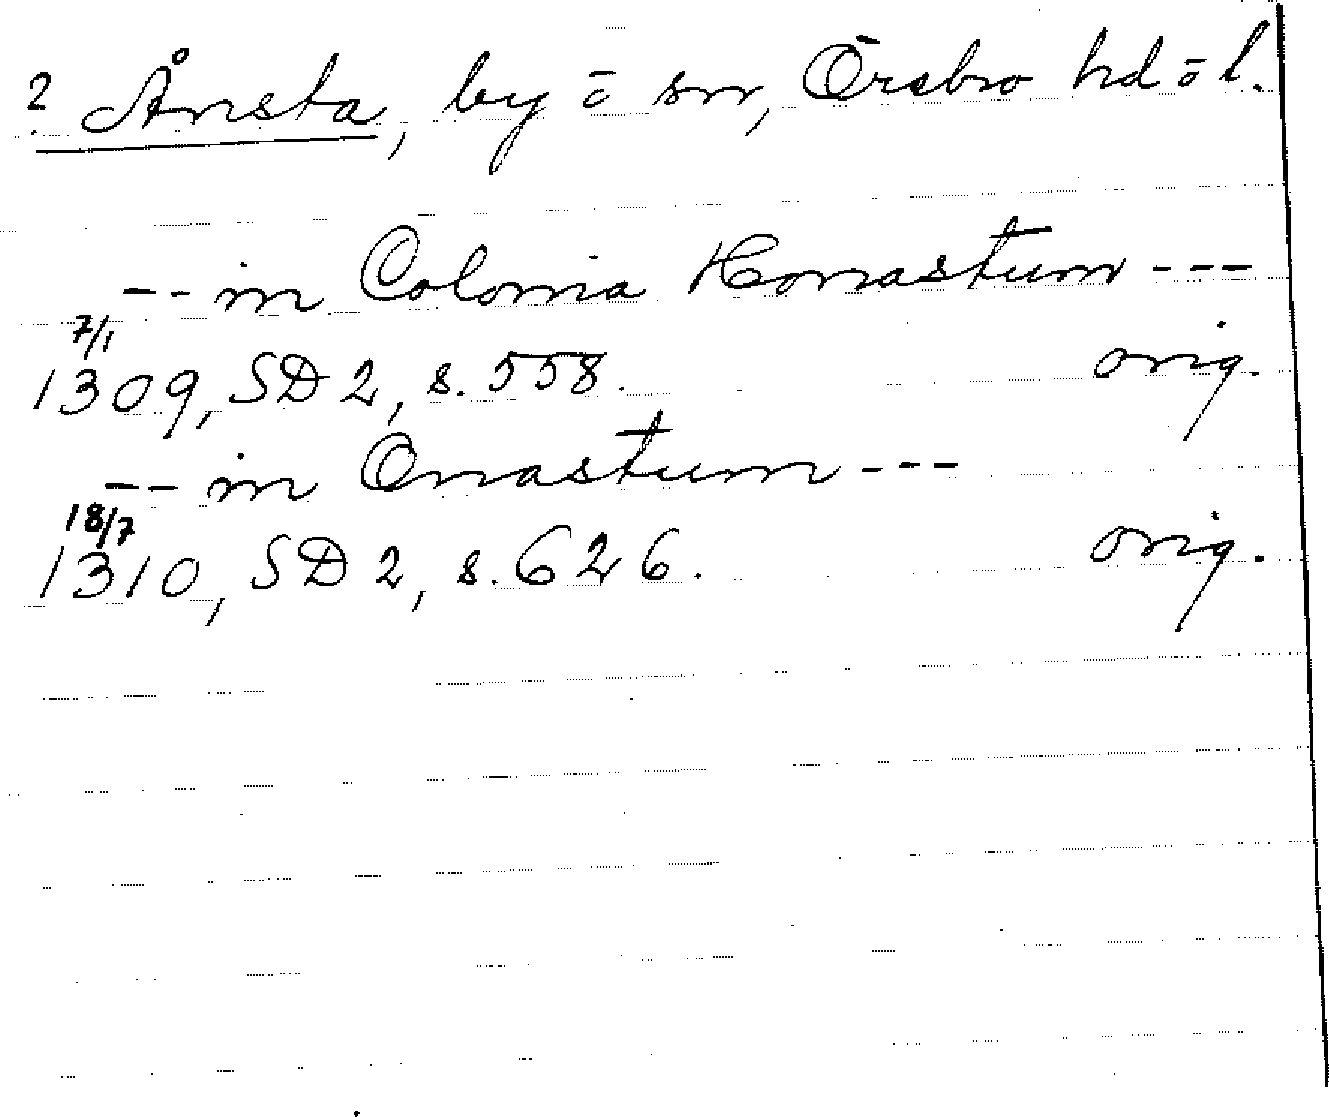 ? Ånsta, by o sn, Örebro hd o l.
-- in Colonia Honastum ---
7/1
1309, SD 2, s. 558. orig.
-- in Onastum ---
18/7
1310, SD 2, s. 626. orig.